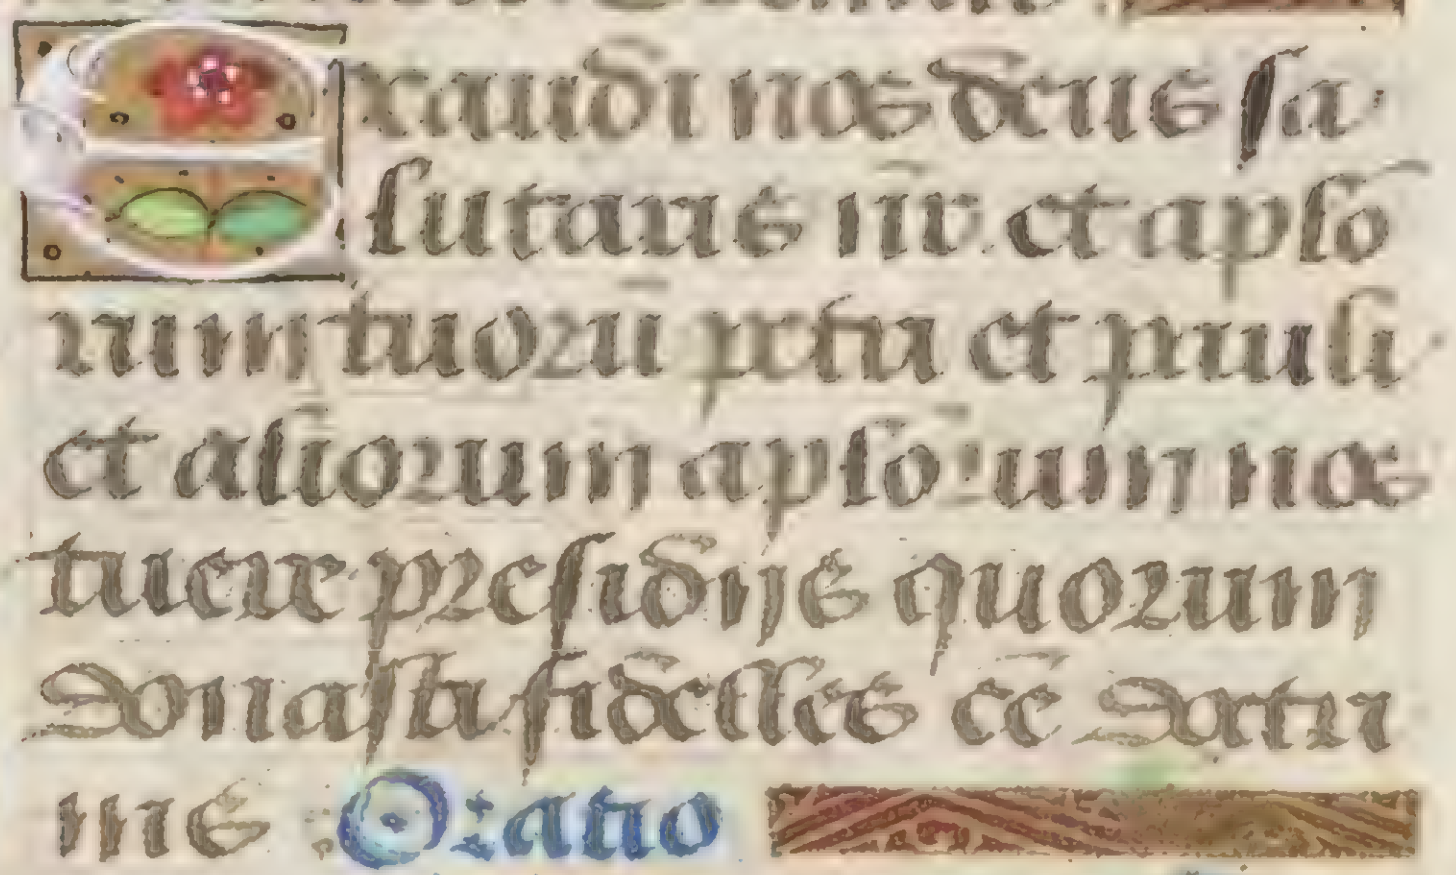 Exaudi nos deus sa
lutaris nr̄ et aplo
rum tuorū petri et pauli
et aliorum aplorum nos
tuere presidijs quorum
donasti fidelles eē doctri
nis Oratio